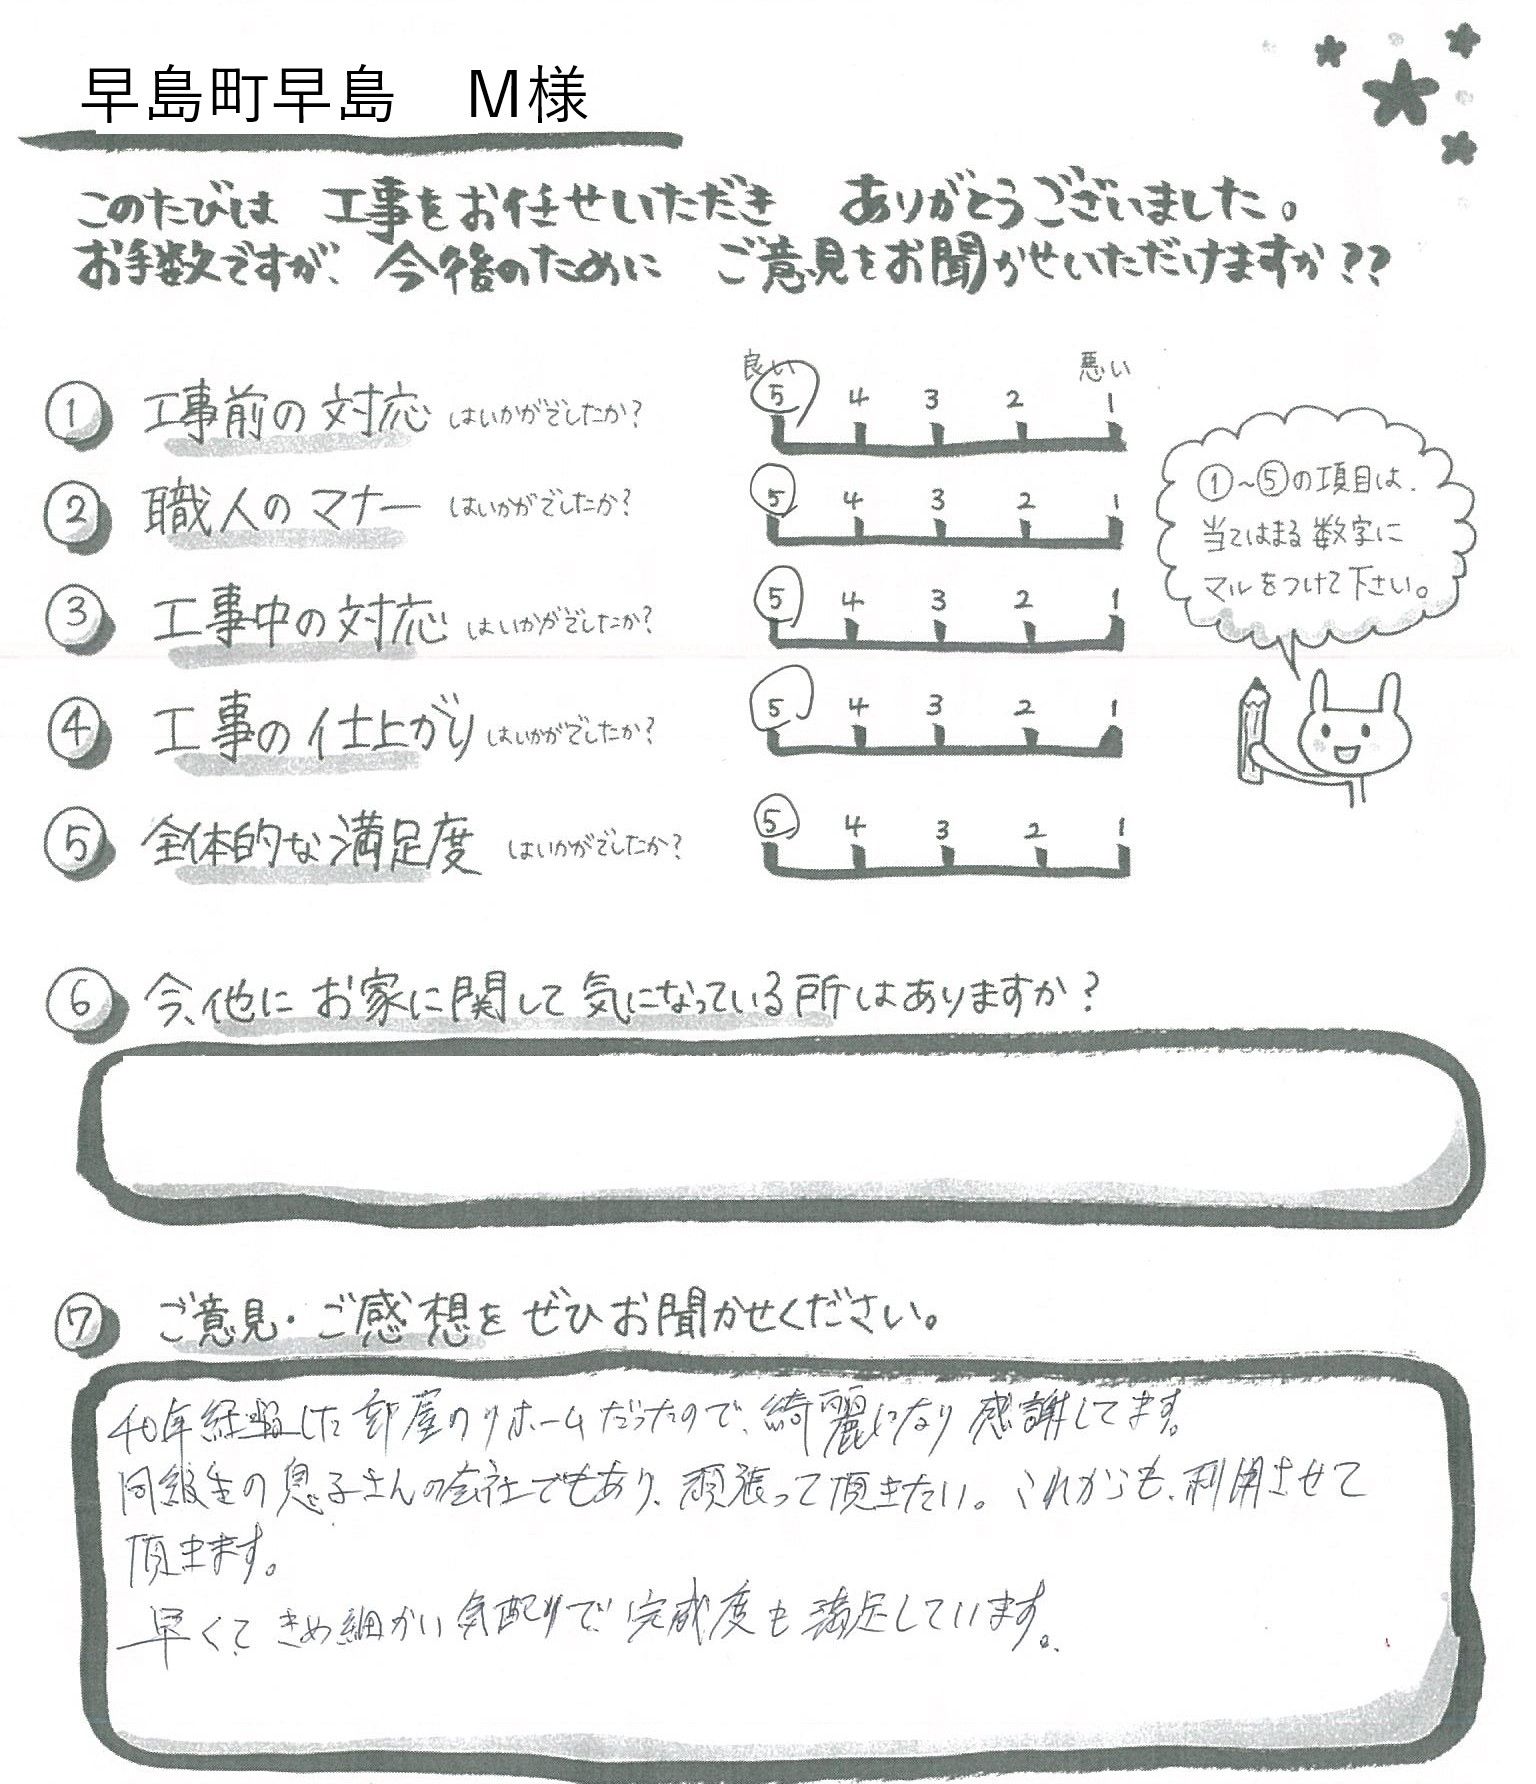 早島町早島　M様
このたびは 工事をお任せいただき ありがとうございました。
お手数ですが、今後のために ご意見をお聞かせいただけますか??
良い 悪い
① 工事前の対応 はいかがでしたか? 5 4 3 2 1
② 職人のマナー はいかがでしたか? 5 4 3 2 1
③ 工事中の対応 はいかがでしたか? 5 4 3 2 1
④ 工事の仕上がり はいかがでしたか? 5 4 3 2 1
⑤ 全体的な満足度 はいかがでしたか? 5 4 3 2 1
①~⑤の項目は、
当てはまる数字に
マルをつけて下さい。
⑥ 今、他に お家に関して気になっている所はありますか?
⑦ ご意見・ご感想を ぜひお聞かせください。
40年経過した部屋のリホームだったので、綺麗になり感謝してます。
同級生の息子さんの会社でもあり、頑張って頂きたい。これからも、利用させて
頂きます。
早くて きめ細かい気配りで、完成度も満足しています。